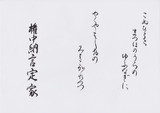 こぬ人を
まつほのうらの
ゆふなぎに
やくやもしほの
みもこがれつつ
権中納言定家